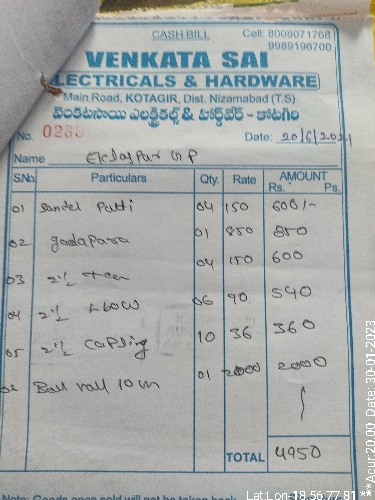 CASH BILL Cell: 8008071768
9989196700
VENKATA SAI
ELECTRICALS & HARDWARE
Main Road, KOTAGIR, Dist. Nizamabad (T.S)
వెంకటసాయి ఎలక్ట్రికల్స్ & హార్డ్‌వేర్ - కోటగిరి
No. 0283 Date: 20/6/2021
Name GP
S.No. Particulars Qty. Rate AMOUNT
Rs. Ps.
01 Patti 04 150 600/-
02 gadapara 01 850 850
03 2½ Tee 04 150 600
04 2½ Elbow 06 90 540
05 2½ Capling 10 36 360
06 Ball vall 01 2000 2000
TOTAL 4950
Note: Goods once sold will not be taken back
Lat:Lon-18.56:77.81
**Acur:20.00, Date: 30-01-2023